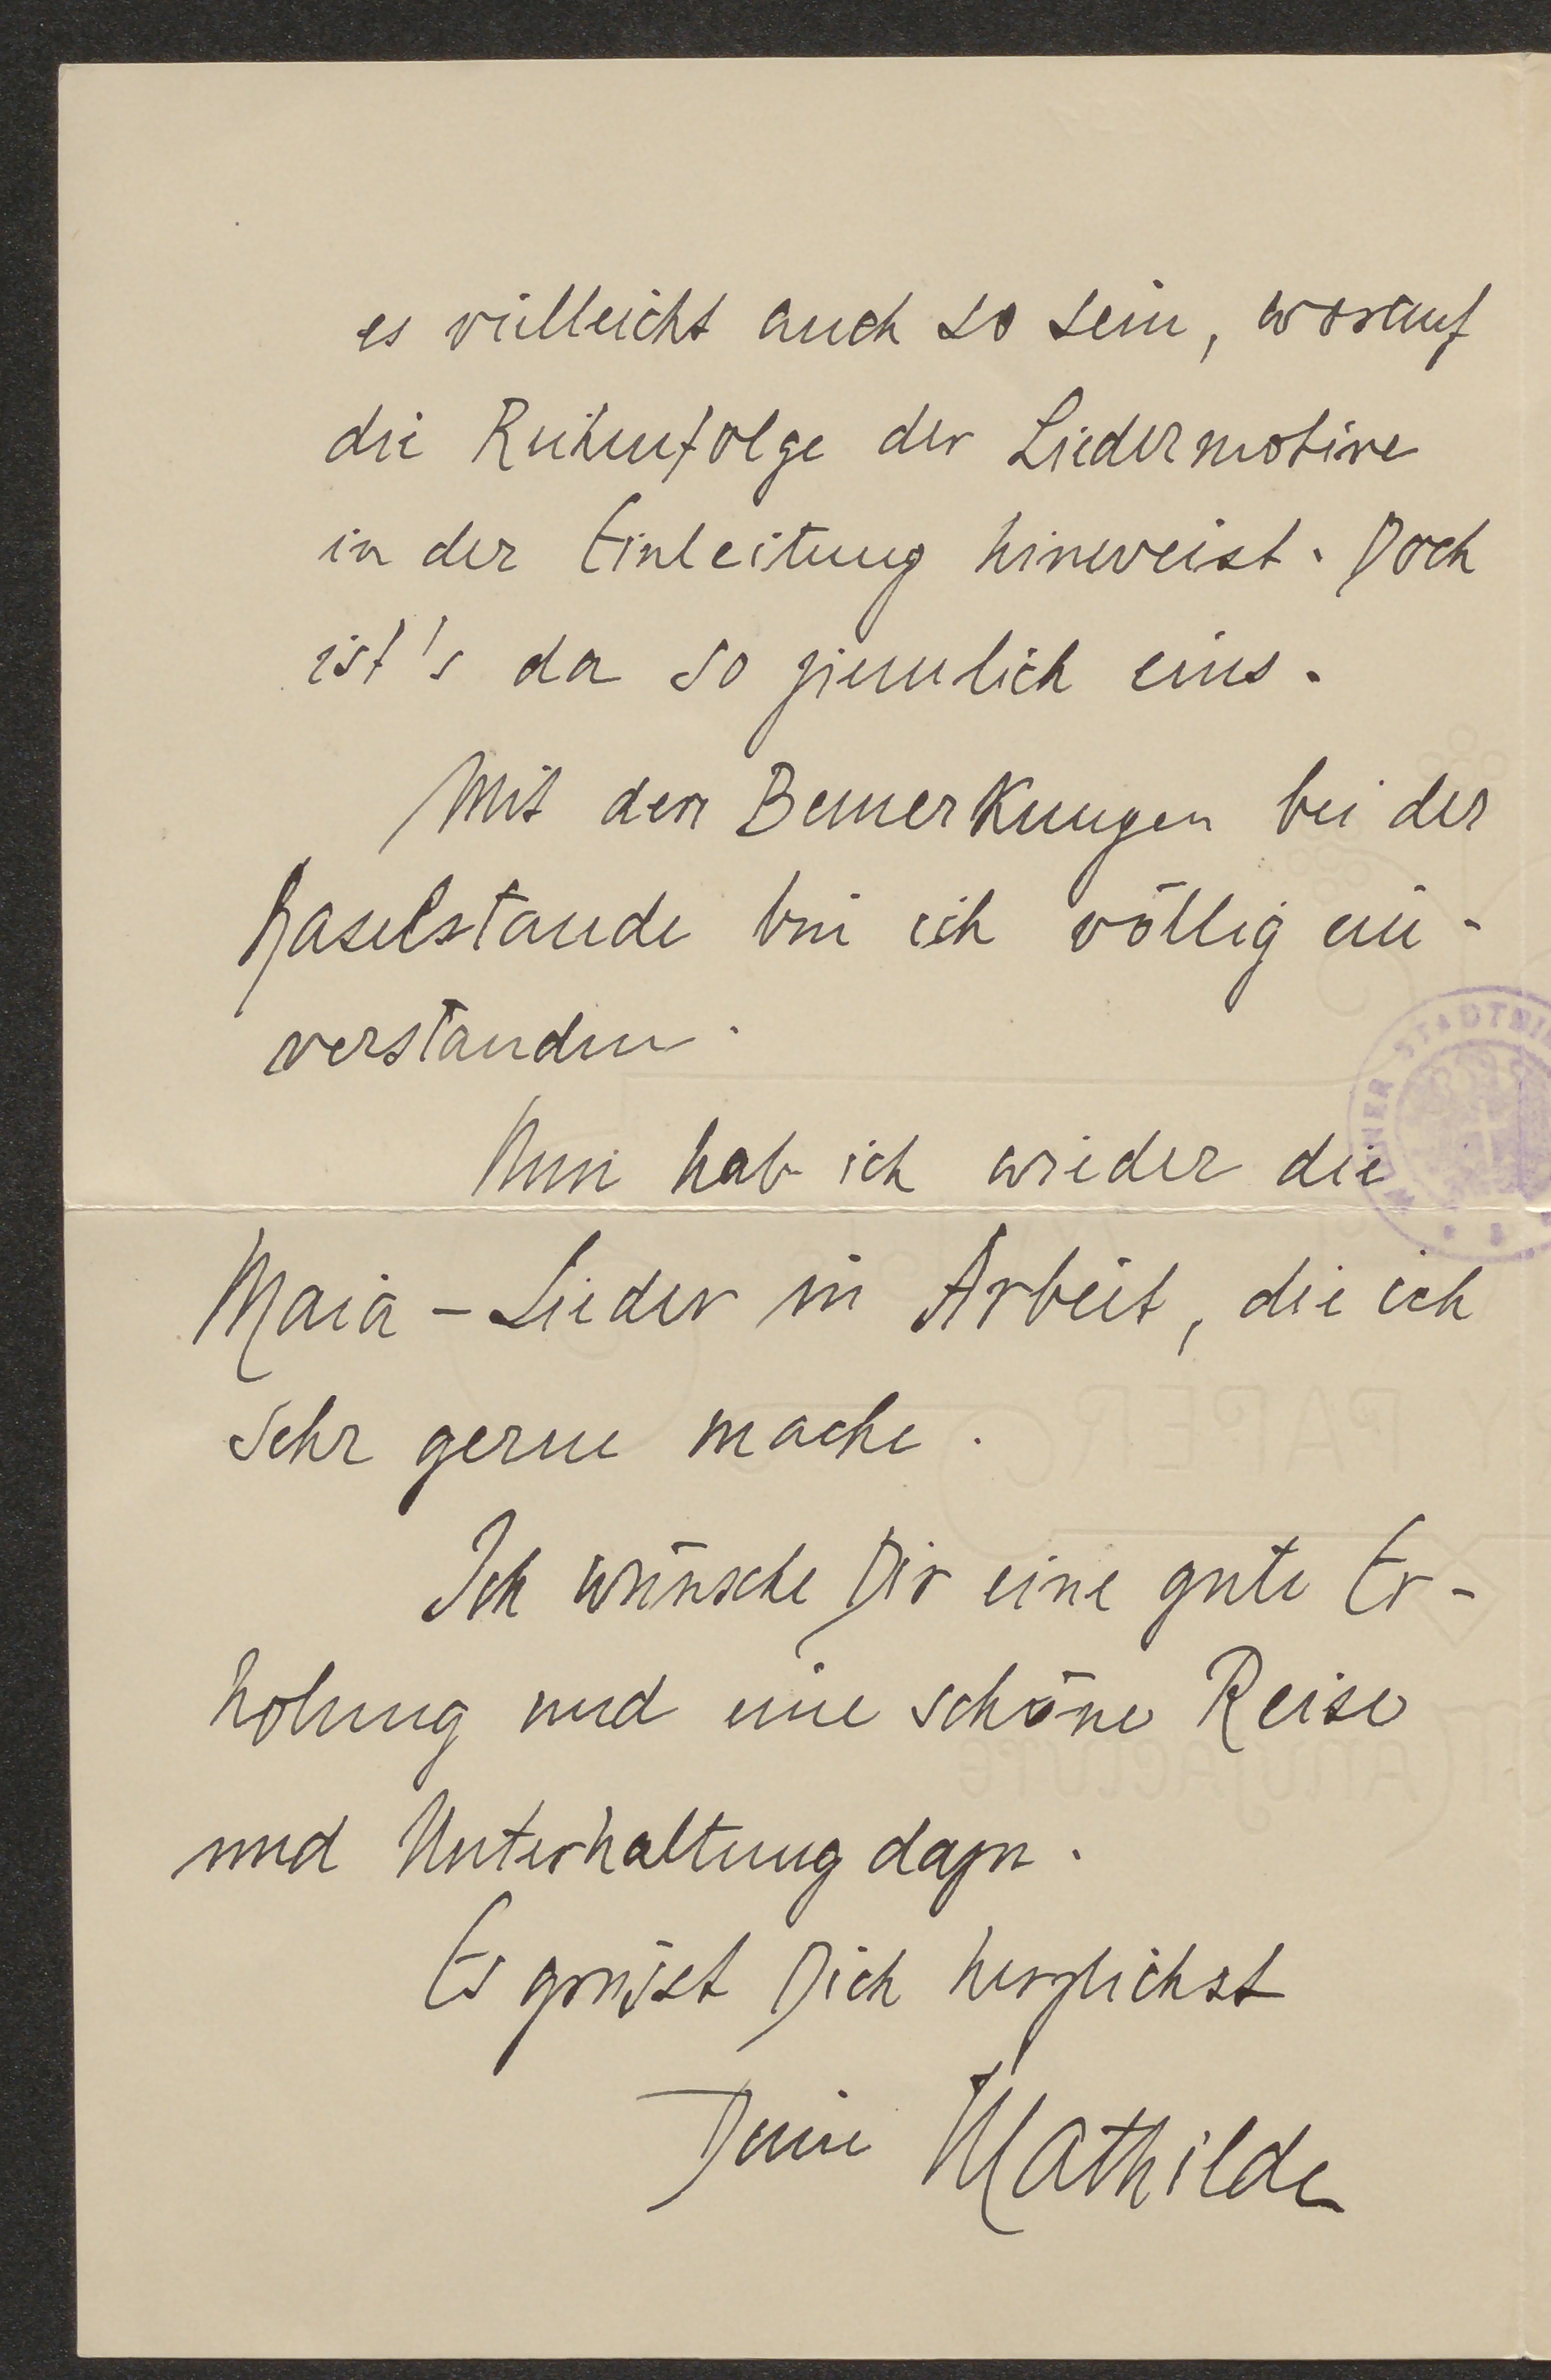 es vielleicht auch so sein, worauf
die Reihenfolge der Liedermotive
in der Einleitung hinweist. Doch
ist's da so ziemlich eins.
Mit den Bemerkungen bei der
Haselstaude bin ich völlig ein-
verstanden.
Nun hab ich wieder die
Maia-Lieder in Arbeit, die ich
sehr gerne mache.
Ich wünsche Dir eine gute Er-
holung und eine schöne Reise
und Unterhaltung dazu.
Es grüsst Dich herzlichst
Deine Mathilde